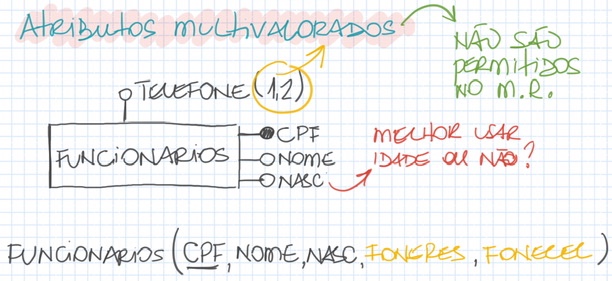 ATRIBUTOS MULTIVALORADOS
NÃO SÃO
PERMITIDOS
NO M.R.
TELEFONE (1,2)
FUNCIONARIOS
CPF
NOME
NASC
MELHOR USAR
IDADE OU NÃO?
FUNCIONARIOS (CPF, NOME, NASC, FONERES, FONECEL)